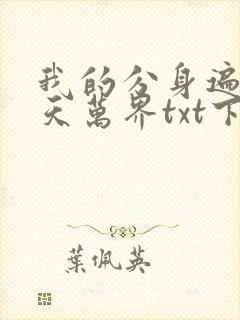 我的分身遍
天萬界txt下
葉佩英